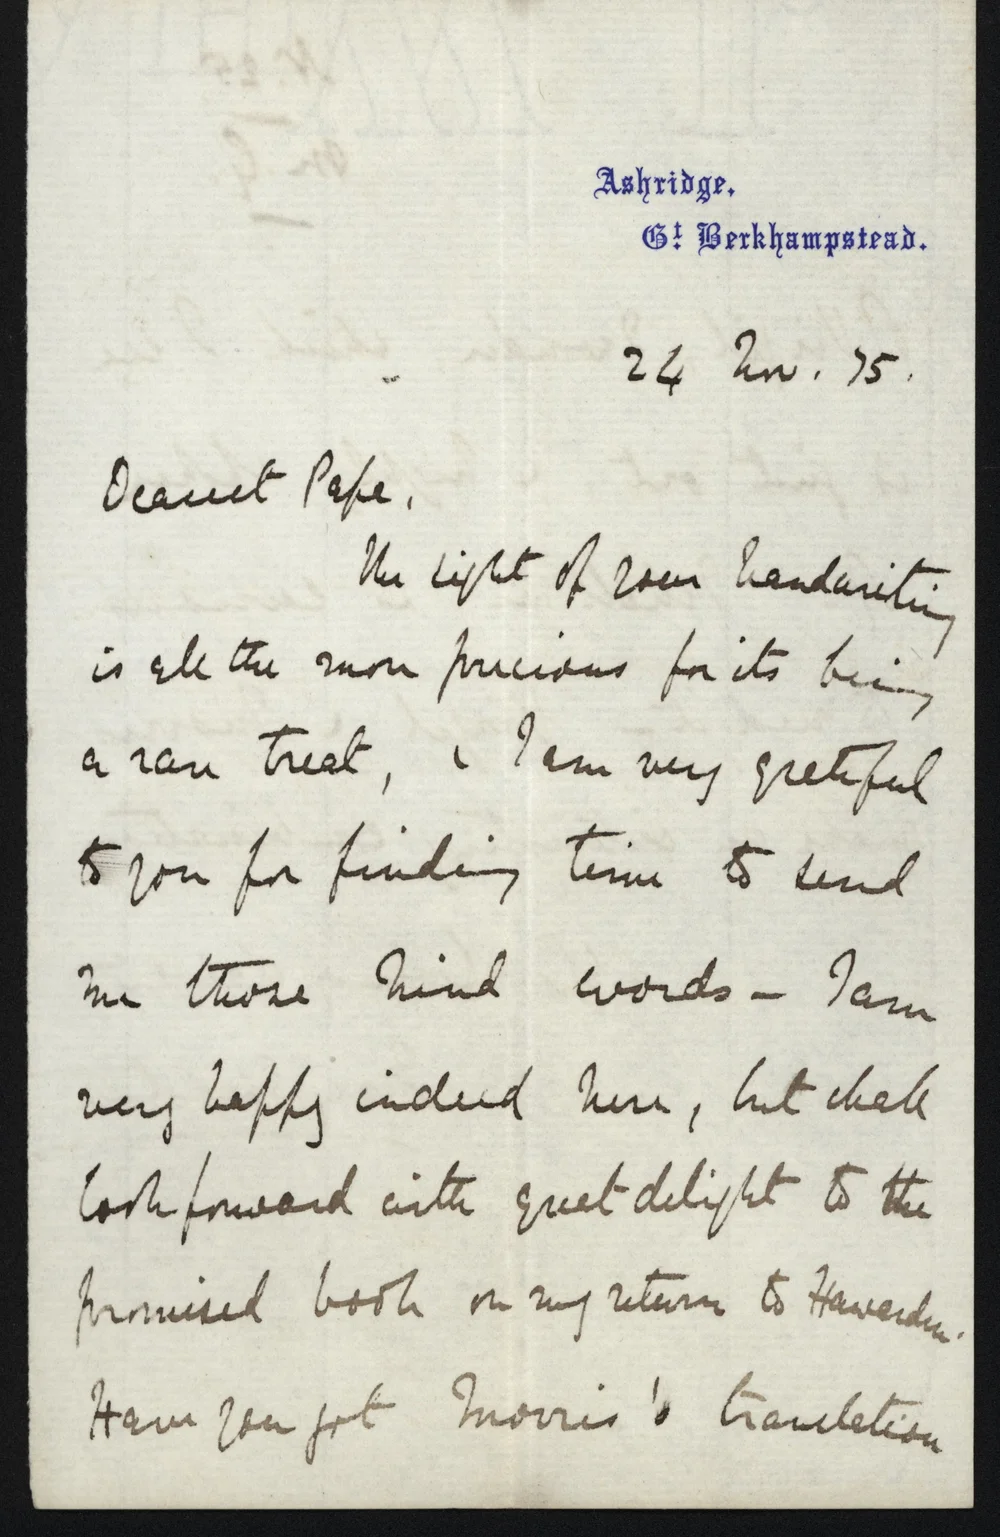 Ashridge,
Gt Berkhampstead.
24 Nov. 75.
Dearest Papa,
The sight of your handwriting
is all the more precious for its being
a rare treat, & I am very grateful
to you for finding time to send
me those kind words – I am
very happy indeed here, but shall
look forward with great delight to the
promised book on my return to Hawarden.
Have you got Morris's translation